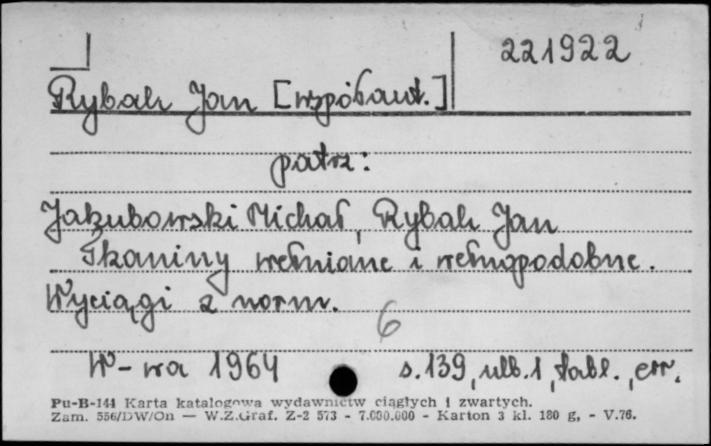 221922
Rybak Jan [współaut.]
patrz:
Jakubowski Michał, Rybak Jan
Tkaniny wełniane i wełnopodobne.
Wyciągi z norm.
6
W-wa 1964 s. 139, nlb. 1, tabl., err.
Pu-B-144 Karta katalogowa wydawnictw ciągłych i zwartych.
Zam. 556/DW/On — W.Z.Graf. Z-2 573 - 7.000.000 - Karton 3 kl. 180 g, - V.76.